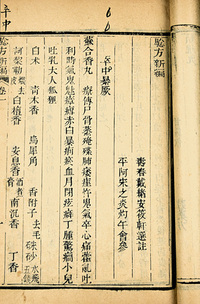 驗方新編
壽春戴緒安筱軒選註
平阿宋之炎灼午會參
卒中暴厥
蘇合香丸 療傳尸骨蒸殗殜肺痿疰忤鬼氣卒心痛霍亂吐
利時氣鬼魅瘴瘧赤白暴痢瘀血月閉痃癖丁腫驚癇小兒
吐乳大人狐狸
白朮 青木香 烏犀角 香附子去毛 硃砂水飛
訶黎勒 白檀香 安息香 南沉香 丁香
卒中